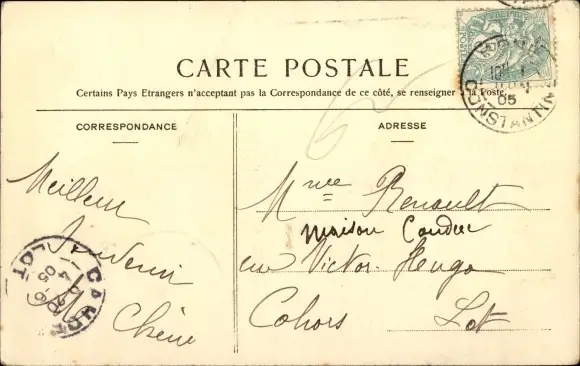 CARTE POSTALE
Certains Pays Etrangers n'acceptent pas la Correspondance de ce côté, se renseigner à la Poste.
CORRESPONDANCE
Meilleur
Souvenir
Chêne
ADRESSE
Renault
maison
rue Victor Hugo
Cahors Lot
CONSTANTIN
05
LOT
05